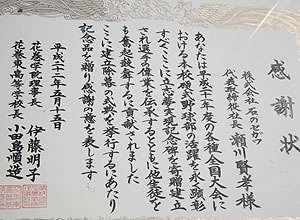 感謝状
株式会社 石のセガワ
代表取締役社長 瀬川賢孝 様
あなたは平成二十一年度の各種全国大会に
おける本校硬式野球部の活躍を永く顕彰
すべくここに立派な実現記念碑を寄贈建立
され選手の偉業を伝承するとともに他生徒を
も奮起鼓舞するに貢献されました
ここに建立除幕の式典を挙行するにあたり
記念品を贈り感謝の意を表します
平成二十二年五月十五日
花巻学院理事長 伊藤明子
花巻東高等学校長 小田島順造